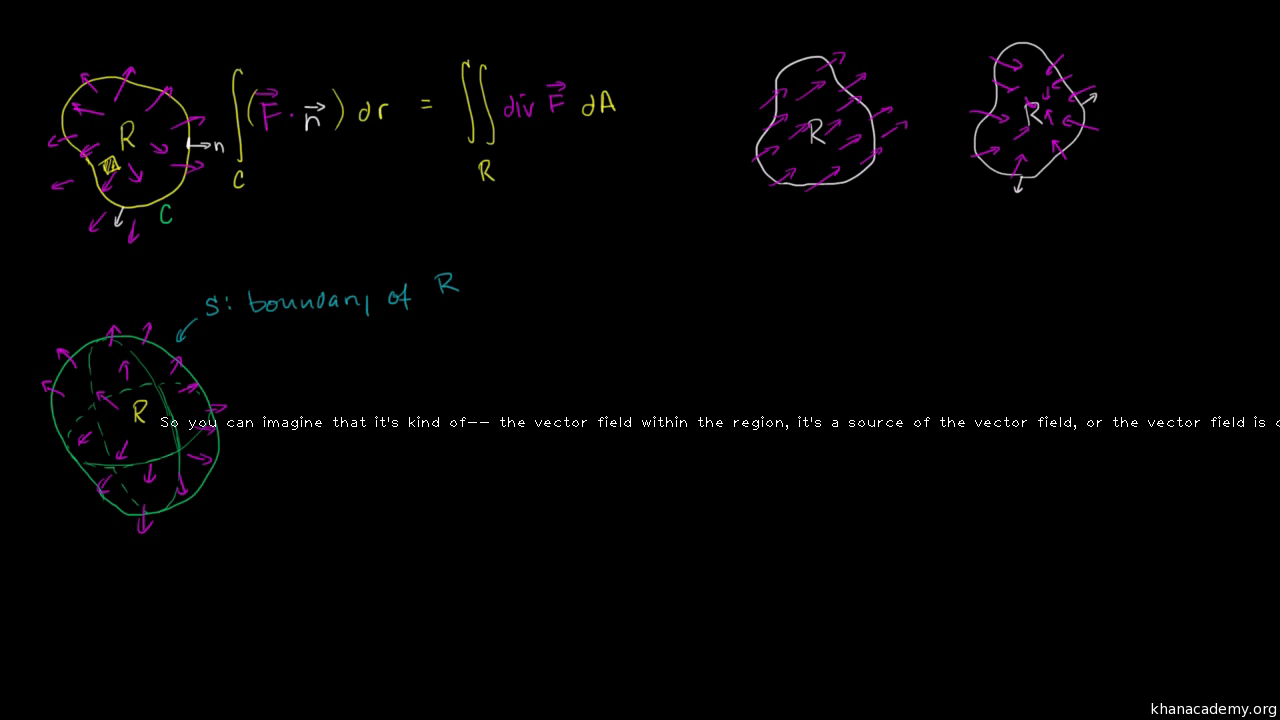 R
n
C
∫_C (F⃗ · n⃗) dr = ∬_R div F⃗ dA
R
R
S: boundary of R
R
So you can imagine that it's kind of-- the vector field within the region, it's a source of the vector field, or the vector field is
khanacademy.org